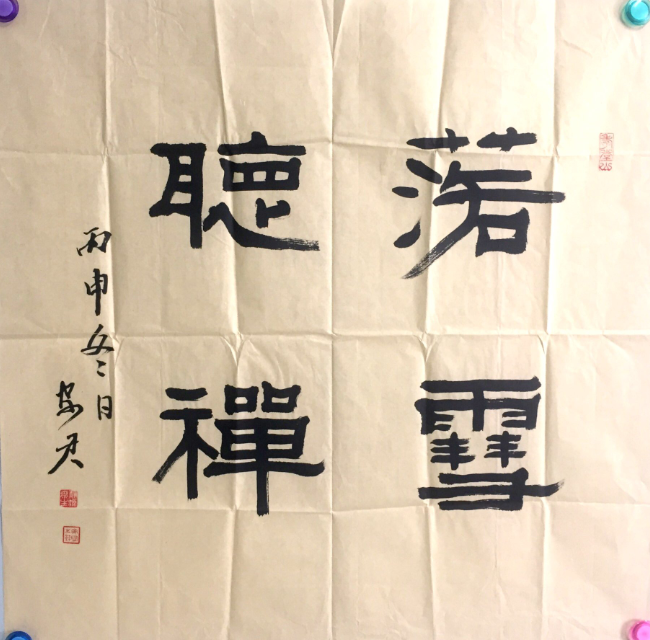 落雪
聽禪
丙申冬日
安君